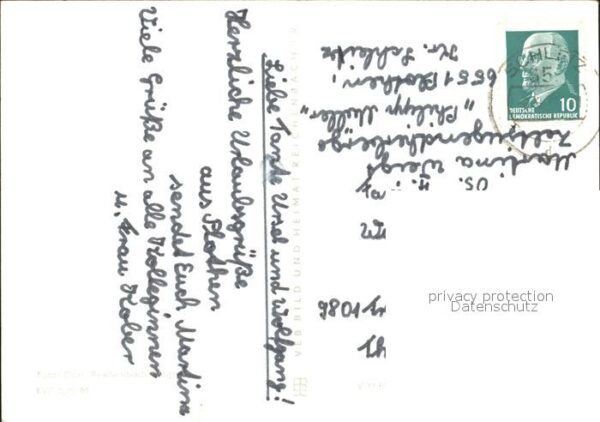 Liebe Tante Ursel und Wolfgang!
Herzliche Urlaubsgrüße
aus Plothen
sendet Euch Martina
Viele Grüße an alle Kolleginnen
u. Frau Kober
Martina Weigt
Zeltjugendherberge
"Philipp Müller"
6551 Plothen,
Kr. Schleiz
SCHLEIZ
10
DEUTSCHE
DEMOKRATISCHE REPUBLIK
VEB BILD UND HEIMAT REICHENBACH I. V.
1086
privacy protection
Datenschutz